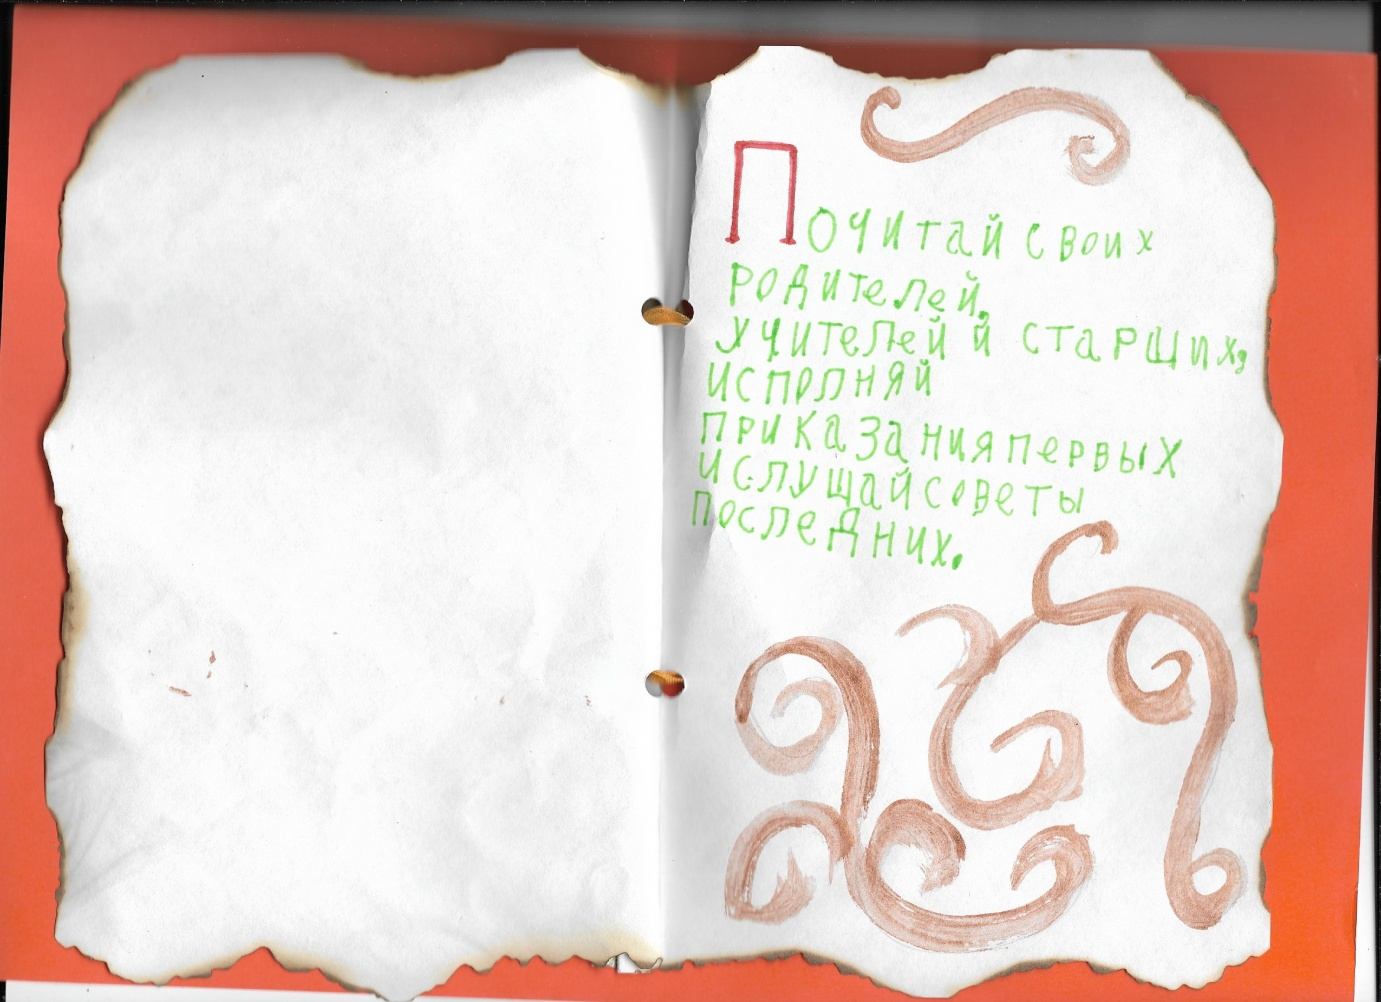 Почитай своих
родителей,
учителей и старших,
исполняй
приказания первых
и слушай советы
последних.